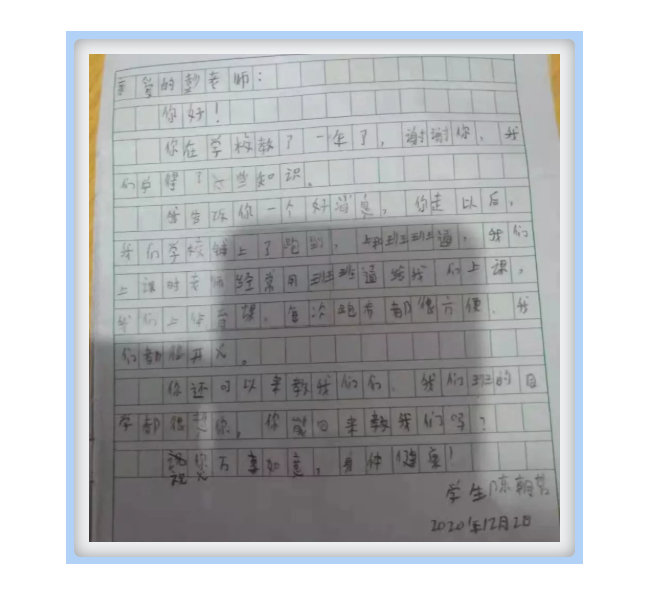 亲爱的彭老师：
你好！
你在学校教了一年了，谢谢你，我
们学得了一些知识。
我告诉你一个好消息，你走以后，
我们学校铺上了跑到，班班通，我们
上课时老师经常用班班通给我们上课。
我们上体育课，每次跑步都很方便，我
们都很开心。
你还可以来教我们们，我们班的同
学都很想你，你能回来教我们吗？
祝你万事如意，身体健康！
学生陈朝
2020年12月2日